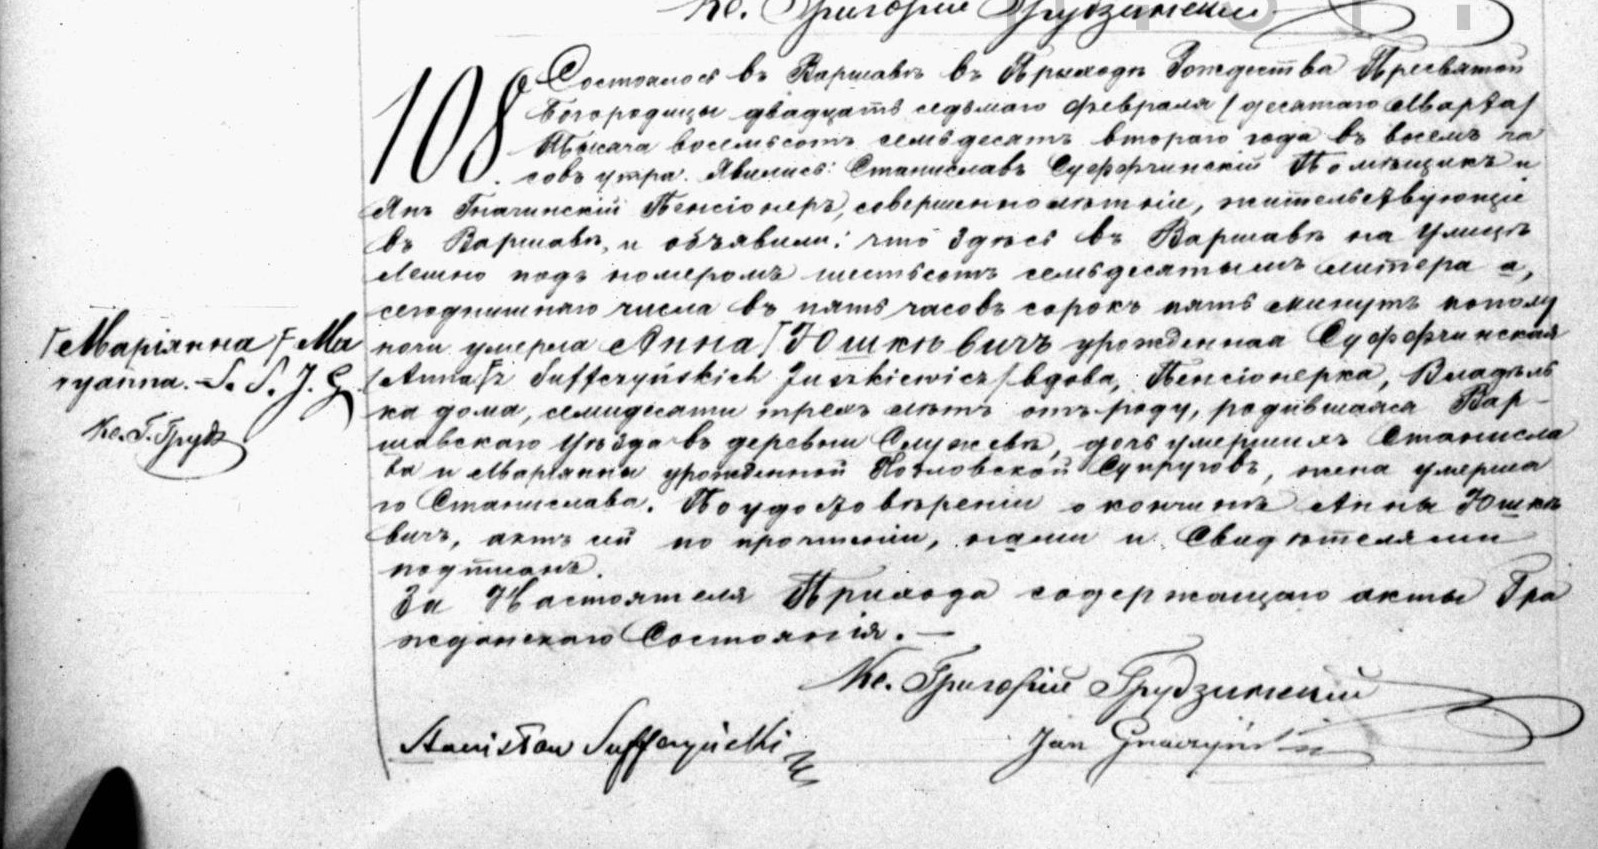 Кс. Григорій Грудзинскій
108.
Состоялось въ Варшавѣ въ Приходѣ Рождества Пресвятой
Богородицы двадцать седьмаго Февраля /десятаго Марта/
Тысяча восемьсотъ семьдесятъ втораго года въ восемь ча
совъ утра. Явились: Станиславъ Суффчинскій Помѣщикъ и
Янъ Гначинскій Пенсіонеръ, совершеннолѣтніе, жительствующіе
въ Варшавѣ, и объявили: что здѣсь въ Варшавѣ на улицѣ
Лешно подъ номеромъ шестьсотъ семьдесятымъ литера а,
сегоднишняго числа въ пять часовъ сорокъ пять минутъ пополу
ночи умерла Анна Юшкѣвичъ урожденная Суффчинская
/Anna z Suffczyńskich Juszkiewicz/ вдова, Пенсіонерка, Владѣль
ка дома, семидесяти трехъ лѣтъ отъ роду, родившаяся Вар-
шавскаго Уѣзда въ деревни Служевѣ, дочь умершихъ Станисла
ва и Маріанны урожденной Козловской Супруговъ, жена умерша
го Станислава. По удостовѣреніи о кончинѣ Анны Юшкѣ
вичъ, актъ сей по прочтеніи, нами и Свидѣтелями
подписанъ.
За Настоятеля Прихода содержащаго акты Гра
жданскаго Состоянія.—
Кс. Григорій Грудзинскій
Stanisław Suffczyński
Jan Gnaczyński
Маріянна Ma
ryanna. S. S. J. G.
Кс. Г. Грудз